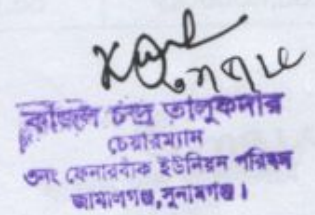 কাজল চন্দ্র তালুকদার
চেয়ারম্যান
৩নং ফেনারবাঁক ইউনিয়ন পরিষদ
জামালগঞ্জ,সুনামগঞ্জ।